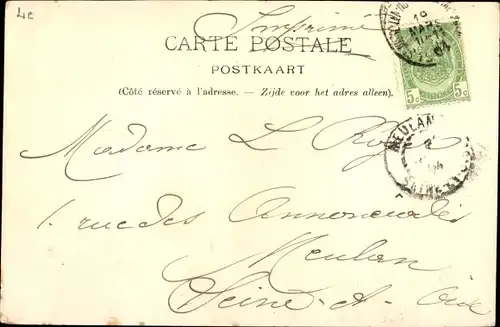 4c
Imprimé
CARTE POSTALE
POSTKAART
(Côté réservé à l'adresse. — Zijde voor het adres alleen).
5c 5c
Madame L Roger
1 rue des Annonciades
Meulan
Seine-et-Oise
MEULAN